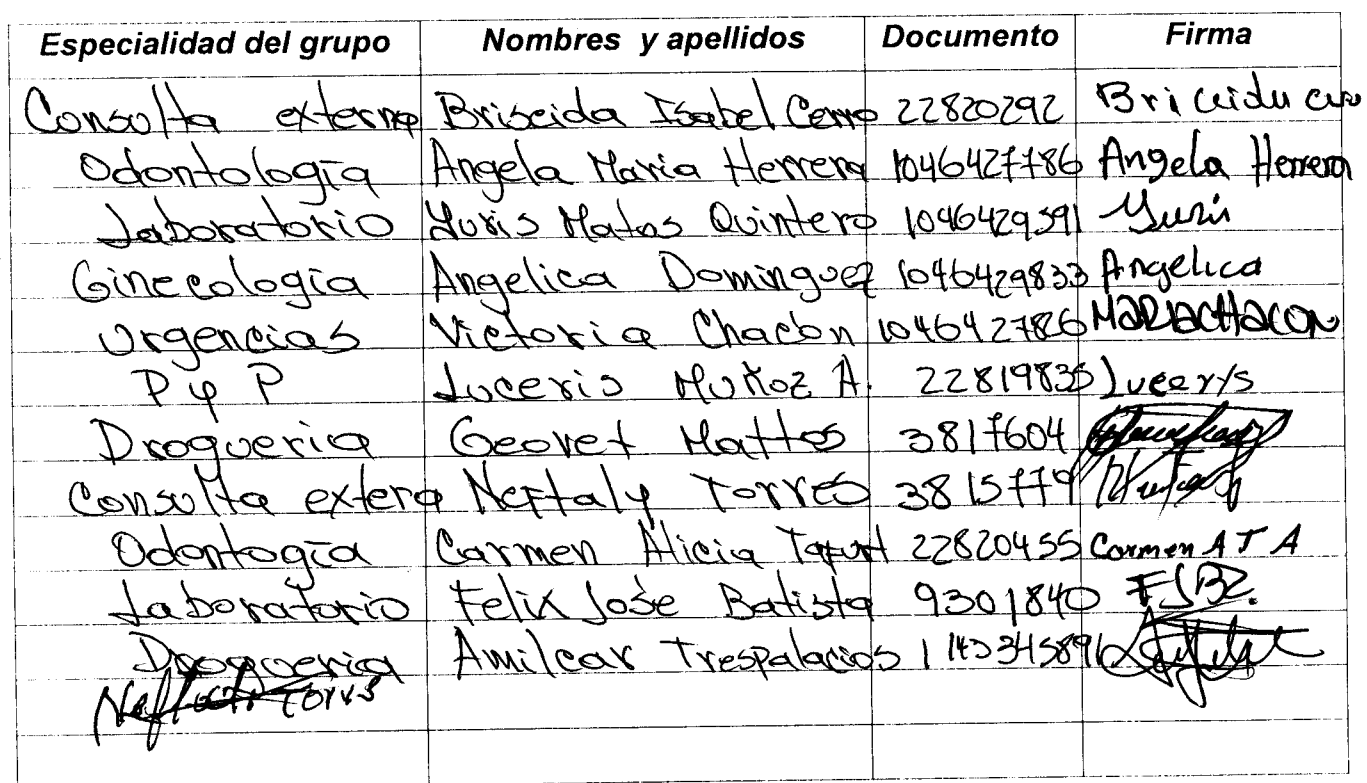 Especialidad del grupo Nombres y apellidos Documento Firma
Consulta externa Briseida Isabel Cerro 22820292 Briceidu
Odontología Angela Maria Herrera 1046427786 Angela Herrera
Laboratorio Yuris Matos Quintero 1046429591 Yuris
Ginecología Angelica Dominguez 1046429833 Angelica
Urgencias Victoria Chacon 1046427826 MARIACHACON
P y P Luceris Muñoz A. 22819835 Lucerys
Drogueria Geovet Mattos 3817604
Consulta extera Neftaly Torres 3815779
Odontogía Carmen Alicia 22820455 Carmen A T A
Laboratorio Felix José Batista 9301840 FJBZ.
Drogueria Amilcar Trespalacios